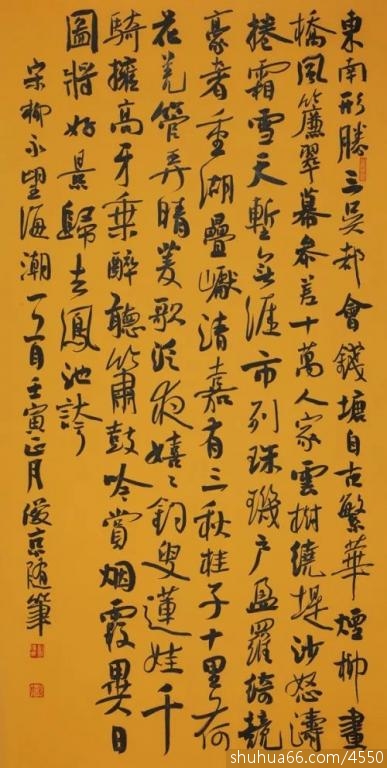 東南形勝三吳都會錢塘自古繁華煙柳畫
橋風簾翠幕參差十萬人家雲樹繞堤沙怒濤
捲霜雪天塹無涯市列珠璣戶盈羅綺競
豪奢重湖疊巘清嘉有三秋桂子十里荷
花羌管弄晴菱歌泛夜嬉〻釣叟蓮娃千
騎擁高牙乘醉聽簫鼓吟賞烟霞異日
圖將好景歸去鳳池誇
宋柳永望海潮一首壬寅正月俊京随筆
shuhua66.com/4550